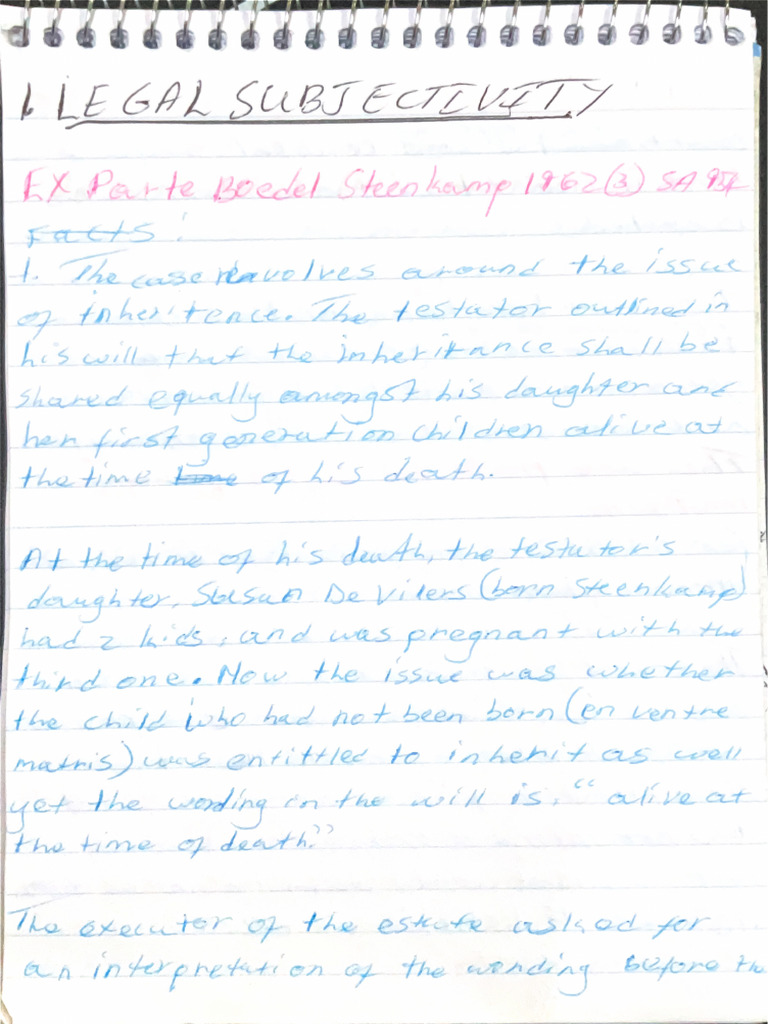 1. LEGAL SUBJECTIVITY
EX Parte Boedel Steenkamp 1962 (3) SA 954
Facts:
1. The case revolves around the issue
of inheritence. The testator outlined in
his will that the inheritance shall be
shared equally amongst his daughter and
her first generation children alive at
the time time of his death.
At the time of his death, the testator's
daughter, Susan De Vilers (born Steenkamp)
had 2 kids, and was pregnant with the
third one. Now the issue was whether
the child who had not been born (en ventre
matris) was entittled to inherit as well
yet the wording in the will is, "alive at
the time of death."
The executor of the estate asked for
an interpretation of the wording before the